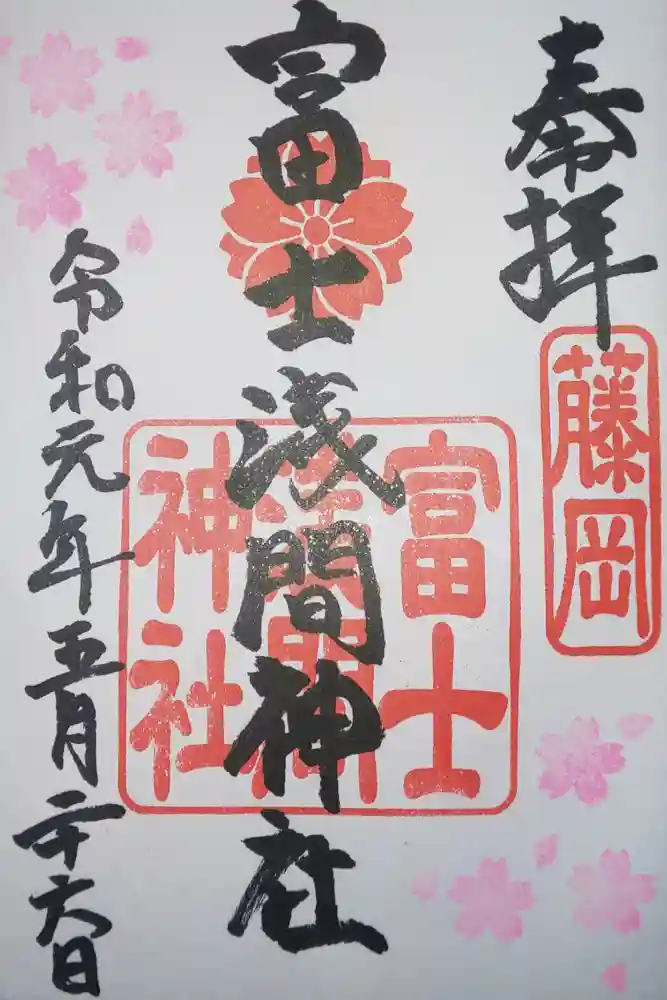 奉拝
藤岡
富士浅間神社
富士浅間神社
令和元年五月二十六日